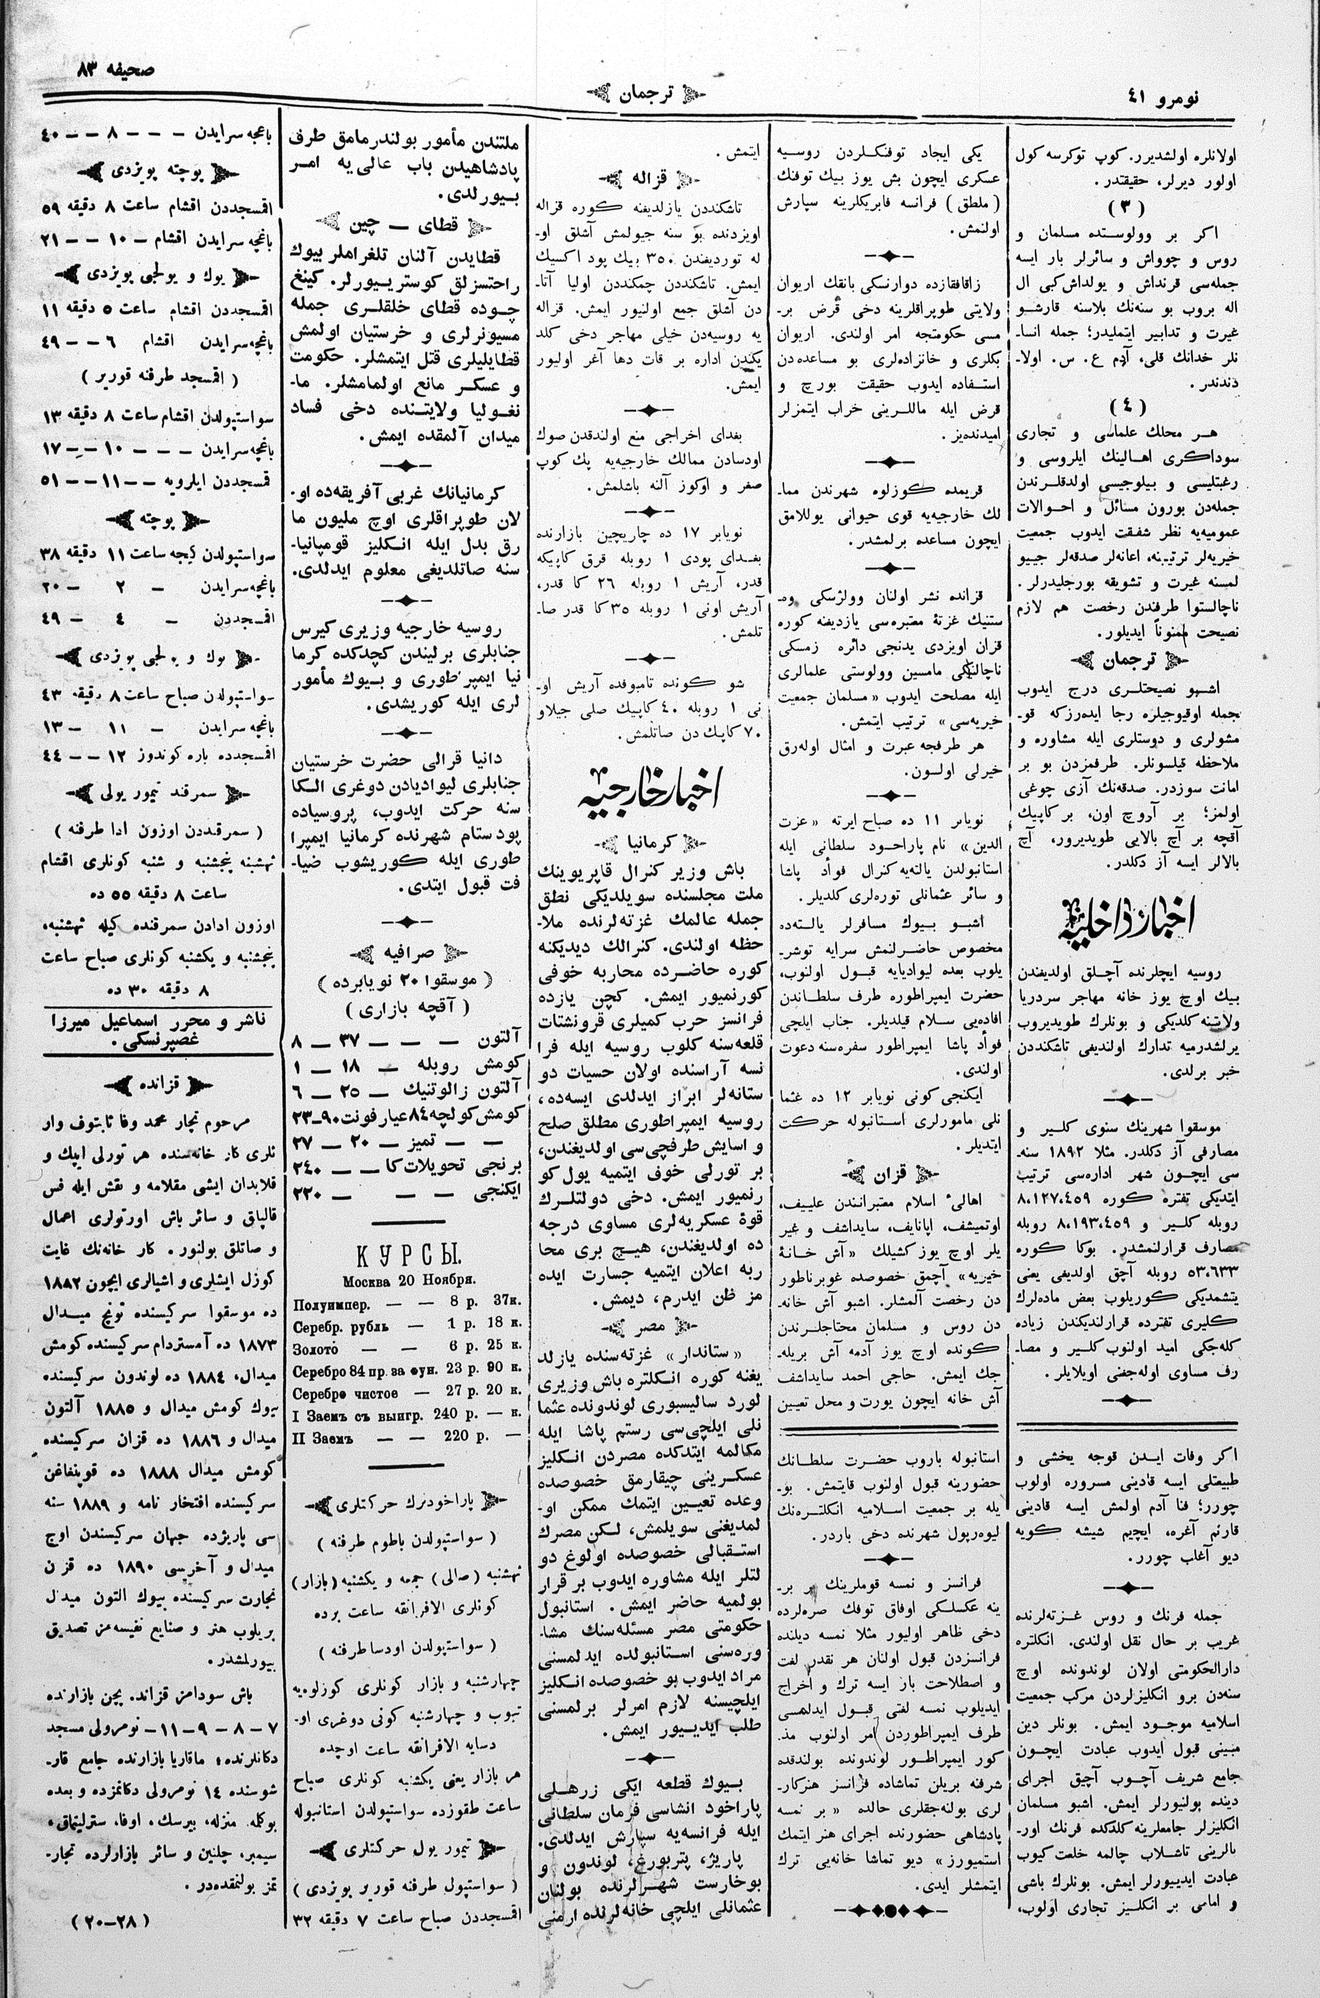 نومرو ٤١
ترجمان
صحیفه ٨٣
اولانلره اولشدیرر. كوپ توكرسه كول
اولور دیرلر، حقیقتدر.
(٣)
اكر بر وولوستده مسلمان و
روس و چوواش و سائرلر بار ایسه
جمله‌سی قرنداش و یولداش كبی ال
اله بروب بو سنه‌نك بلاسنه قارشو
غیرت و تدابیر ایتملیدر؛ جمله انسا-
نلر خدانك قلی، آدم ع. س. اولا-
دندندر.
(٤)
هر محلك علماسی و تجاری
سوداكری اهالینك ایلروسی و
رغبتلیسی و بیلوجیسی اولدقلرندن
جمله‌دن بورون مسائل و احوالات
عمومیه‌یه نظر شفقت ایدوب جمعیت
خیریه‌لر ترتیبنه، اعانه‌لر صدقه‌لر جییو
لمسنه غیرت و تشویقه بورجلیدرلر.
ناچالستوا طرفندن رخصت هم لازم
نصیحت ممنوناً ایدیلور.
ترجمان
اشبو نصیحتلری درج ایدوب
جمله اوقیوجیلره رجا ایده‌رزكه قو-
مشولری و دوستلری ایله مشاوره و
ملاحظه قیلسونلر. طرفمزدن بو بر
امانت سوزدر. صدقه‌نك آزی چوغی
اولمز؛ بر آروچ اون، بر كاپیك
آقچه بر آچ بالایی طویدیرور، آچ
بالالر ایسه آز دكلدر.
اخبار داخلیه
روسیه ایچلرنده آچلق اولدیغندن
بیك اوچ یوز خانه مهاجر سردریا
ولاتنه كلدیكی و بونلرك طویدیروب
یرلشدرمیه تدارك اولندیغی تاشكنددن
خبر برلدی.
موسقوا شهرینك سنوی كلیر و
مصارفی آز دكلدر. مثلا ١٨٩٢ سنه-
سی ایچون شهر اداره‌سی ترتیب
ایتدیكی تفتره كوره ٨،١٢٧،٤٥٩
روبله كلیر و ٨،١٩٣،٤٥٩ روبله
مصارف قرارلنمشدر. بوكا كوره
٥٣،٦٣٣ روبله آچق اولدیغی یعنی
یتشمدیكی كوریلوب بعض ماده‌لرك
كلیری تفترده قرارلندیكندن زیاده
كله‌جكی امید اولنوب كلیر و مصا-
رف مساوی اوله‌جغی اویلایلر.
اكر وفات ایدن قوجه یخشی و
طبیعتلی ایسه قادینی مسروره اولوب
چورر؛ فنا آدم اولمش ایسه قادینی
قارنم آغره، ایچیم شیشه كویه
دیو آغلب چورر.
جمله فرنك و روس غزته‌لرنده
غریب بر حال نقل اولندی. انكلتره
دارالحكومتی اولان لوندونده اوچ
سنه‌دن برو انكلیزلردن مركب جمعیت
اسلامیه موجود ایمش. بونلر دین
مبینی قبول ایدوب عبادت ایچون
جامع شریف آچوب آچیق اجرای
دینده بولنیورلر ایمش. اشبو مسلمان
انكلیزلر جامعلرینه كلدكده فرنك اور-
بالرینی تاشلاب چالمه خلعت كیوب
عبادت ایدییورلر ایمش. بونلرك باشی
و امامی بر انكلیز تجاری اولوب،
یكی ایجاد توفنكلردن روسیه
عسكری ایچون بش یوز بیك توفنك
(ملطق) فرانسه فابریكلرینه سپارش
اولنمش.
زاقاققازده دوارنسكی بانقك اریوان
ولایتی طوپراقلرینه دخی قرض بر-
مسی حكومتجه امر اولندی. اریوان
بكلری و خانزاده‌لری بو مساعده‌دن
استفاده ایدوب حقیقت بورچ و
قرض ایله ماللرینی خراب ایتمزلر
امیدنده‌یز.
قریمده كوزلوه شهرندن مما-
لك خارجیه‌یه قوی حیوانی یوللامق
ایچون مساعده برلمشدر.
قزانده نشر اولنان وولژسكی وه-
ستنیك غزتهٔ معتبره‌سی یازدیغنه كوره
قزان اویزدی یدنجی دائره زمسكی
ناچالنیكی مامسین وولوستی علمالری
ایله مصلحت ایدوب «مسلمان جمعیت
خیریه‌سی» ترتیب ایتمش.
هر طرفجه عبرت و امثال اوله‌رق
خیرلی اولسون.
نویابر ١١ ده صباح ایرته «عزت
الدین» نام پاراحود سلطانی ایله
استانبولدن یالته‌یه كنرال فوأد پاشا
و سائر عثمانلی توره‌لری كلدیلر.
اشبو بیوك مسافرلر یالته‌ده
مخصوص حاضرلنمش سرایه توشر-
یلوب بعده لیوادیایه قبول اولنوب،
حضرت ایمپراطوره طرف سلطاندن
افاده‌یی سلام قیلدیلر. جناب ایلچی
فوأد پاشا ایمپراطور سفره‌سنه دعوت
اولندی.
ایكنجی كونی نویابر ١٢ ده عثما
نلی مامورلری استانبوله حركت
ایتدیلر.
قزان
اهالیٔ اسلام معتبرانندن علییف،
اوتمیشف، اپانایف، سایداشف و غیر
یلر اوچ یوز كشیلك «آش خانهٔ
خیریه» آچمق خصوصده غوبرناطور
دن رخصت آلمشلر. اشبو آش خانه-
دن روس و مسلمان محتاجلرندن
كونده اوچ یوز آدمه آش بریله-
جك ایمش. حاجی احمد سایداشف
آش خانه ایچون یورت و محل تعیین
استانبوله باروب حضرت سلطانك
حضورینه قبول اولنوب قایتمش. بو-
یله بر جمعیت اسلامیه انكلتره‌نك
لیوه‌رپول شهرنده دخی باردر.
فرانسز و نمسه قوملرینك بر بر-
ینه عكسلكی اوفاق توفك صره‌لرده
دخی ظاهر اولیور مثلا نمسه دیلنده
فرانسزدن قبول اولنان هر نقدر لفت
و اصطلاحت باز ایسه ترك و اخراج
ایدیلوب نمسه لفتی قبول ایدلمسی
طرف ایمپراطوردن امر اولنوب مذ-
كور ایمپراطور لوندونده بولندقده
شرفنه بریلن تماشاده فرانسز هنركار-
لری بولنه‌جقلری حالده «بر نمسه
پادشاهی حضورنده اجرای هنر ایتمك
استمیورز» دیو تماشا خانه‌یی ترك
ایتمشلر ایدی.
ایتمش.
قزاله
تاشكنددن یازلدیغنه كوره قزاله
اویزدنده بو سنه جیولمش آشلق او-
له توردیغندن ٣٥٠ بیك پود اكسیك
ایمش. تاشكنددن چمكنددن اولیا آتا-
دن آشلق جمع اولنیور ایمش. قزاله
یه روسیه‌دن خیلی مهاجر دخی كلد
یكندن اداره بر قات دها آغر اولیور
ایمش.
بغدای اخراجی منع اولندقدن صوك
اودسادن ممالك خارجیه‌یه پك كوپ
صغر و اوكوز آلنه باشلمش.
نویابر ١٧ ده چاریچین بازارنده
بغدای پودی ١ روبله قرق كاپیكه
قدر، آریش ١ روبله ٢٦ كا قدر،
آریش اونی ١ روبله ٣٥ كا قدر صا-
تلمش.
شو كونده تامبوفده آریش او-
نی ١ روبله ٤٠ كاپیك صلی جیلاو
٧٠ كاپك دن صاتلمش.
اخبار خارجیه
كرمانیا
باش وزیر كنرال قاپریوینك
ملت مجلسنده سویلدیكی نطق
جمله عالمك غزته‌لرنده ملا-
حظه اولندی. كنرالك دیدیكنه
كوره حاضرده محاربه خوفی
كورنمیور ایمش. كچن یازده
فرانسز حرب كمیلری قرونشتات
قلعه‌سنه كلوب روسیه ایله فرا
نسه آراسنده اولان حسیات دو
ستانه‌لر ابراز ایدلدی ایسه‌ده،
روسیه ایمپراطوری مطلق صلح
و اسایش طرفچی‌سی اولدیغندن،
بر تورلی خوف ایتمیه یول كو
رنمیور ایمش. دخی دولتلرك
قوهٔ عسكریه‌لری مساوی درجه
ده اولدیغندن، هیچ بری محا
ربه اعلان ایتمیه جسارت ایده
مز ظن ایدرم، دیمش.
مصر
«ستاندار» غزته‌سنده یازلد
یغنه كوره انكلتره باش وزیری
لورد سالیسبوری لوندونده عثما
نلی ایلچی‌سی رستم پاشا ایله
مكالمه ایتدكده مصردن انكلیز
عسكرینی چیقارمق خصوصده
وعده تعیین ایتمك ممكن او-
لمدیغنی سویلمش، لكن مصرك
استقبالی خصوصده اولوغ دو
لتلر ایله مشاوره ایدوب بر قرار
بولمیه حاضر ایمش. استانبول
حكومتی مصر مسئله‌سنك مشا-
وره‌سنی استانبولده ایدلمسنی
مراد ایدوب بو خصوصده انكلیز
ایلچیسنه لازم امرلر برلمسنی
طلب ایدییور ایمش.
بیوك قطعه ایكی زرهلی
پاراخود انشاسی فرمان سلطانی
ایله فرانسه‌یه سپارش ایدلدی.
پاریژ، پتربورغ، لوندون و
بوخارست شهرلرنده بولنان
عثمانلی ایلچی خانه‌لرنده ارمنی
ملتندن مأمور بولندرمامق طرف
پادشاهیدن باب عالی یه امر
بیورلدی.
قطای — چین
قطایدن آلنان تلغراملر بیوك
راحتسزلق كوستریییورلر. كینغ
چوده قطای خلقلری جمله
مسیونرلری و خرستیان اولمش
قطایلیلری قتل ایتمشلر. حكومت
و عسكر مانع اولمامشلر. ما-
نغولیا ولایتنده دخی فساد
میدان آلمقده ایمش.
كرمانیانك غربی آفریقه‌ده او-
لان طوپراقلری اوچ ملیون ما
رق بدل ایله انكلیز قومپانیا-
سنه صاتلدیغی معلوم ایدلدی.
روسیه خارجیه وزیری كیرس
جنابلری برلیندن كچدكده كرما
نیا ایمپرطوری و بیوك مأمور
لری ایله كوریشدی.
دانیا قرالی حضرت خرستیان
جنابلری لیوادیادن دوغری الكا
سنه حركت ایدوب، پروسیاده
پودستام شهرنده كرمانیا ایمپرا
طوری ایله كوریشوب ضیا-
فت قبول ایتدی.
صرافیه
(موسقوا ٢٠ نویابرده)
(آقچه بازاری)
آلتون — — — ٣٧ — ٨
كومش روبله — ١٨ — ١
آلتون زالوتنیك — ٢٥ — ٦
كومش كولچه ٨٤ عیار فونت ٩٠—٢٣
— — تمیز — ٢٠ — ٢٧
برنجی تحویلات كا — — ٢٤٠
ایكنجی — — — ٢٢٠
КУРСЫ.
Москва 20 Ноября.
Полуимпер. — — 8 р. 37к.
Серебр. рубль — 1 р. 18 к.
Золото — — 6 р. 25 к.
Серебро 84 пр. за фун. 23 р. 90 к.
Серебре чистое — 27 р. 20 к.
I Заемъ съ выигр. 240 р. — к.
II Заемъ — — 220 р. —
پاراخودنرك حركتلری
(سواستپولدن باطوم طرفنه)
ثهشنبه (صالی) جمعه و یكشنبه (بازار)
كونلری الافرانقه ساعت برده
(سواستپولدن اودسا طرفنه)
چهارشنبه و بازار كونلری كوزلوه‌یه
تیوب و چهارشنبه كونی دوغری او-
دسایه الافرانقه ساعت اوچده
هر بازار یعنی یكشنبه كونلری صباح
ساعت طقوزده سواستپولدن استانبوله
تیمور یول حركتلری
(سواستپول طرفنه قوریر پویزدی)
اقمسجددن صباح ساعت ٧ دقیقه ٣٢
باغچه سرایدن — — — ٨ — — ٤٠
پوچته پویزدی
اقمسجددن اقشام ساعت ٨ دقیقه ٥٩
باغچه سرایدن اقشام — ١٠ — — ٢١
یوك و یولجی پویزدی
اقمسجددن اقشام ساعت ٥ دقیقه ١١
باغچه سرایدن اقشام ٦ — — ٤٩
(اقمسجد طرفنه قوریر)
سواستپولدن اقشام ساعت ٨ دقیقه ١٣
باغچه سرایدن — — — ١٠ — — ١٧
قمسجددن ایلرویه — — ١١ — — ٥١
پوچته
سواستپولدن كیجه ساعت ١١ دقیقه ٣٨
باغچه سرایدن — ٢ — ٢٠
اقمسجددن — ٤ — ٤٩
یوك و یولجی پویزدی
سواستپولدن صباح ساعت ٨ دقیقه ٤٣
باغچه سرایدن — ١١ — ١٣
اقمسجدده باره كوندوز ١٢ — — ٤٤
سمرقند تیمور یولی
(سمرقنددن اوزون ادا طرفنه)
ثهشنبه پنجشنبه و شنبه كونلری اقشام
ساعت ٨ دقیقه ٥٥ ده
اوزون ادادن سمرقنده كیله ثهشنبه،
پنجشنبه و یكشنبه كونلری صباح ساعت
٨ دقیقه ٣٠ ده
ناشر و محرر اسماعیل میرزا
غصپرنسكی.
قزانده
مرحوم تجار محمد وفا ثابتوف وار
ثلری كار خانه‌سنده هر تورلی ایپك و
قلابدان ایشی مقلامه و نقش ایله فس
قالپاق و سائر باش اورتولری اعمال
و صاتلق بولنور. كار خانه‌نك غایت
كوزل ایشلری و اشیالری ایچون ١٨٨٢
ده موسقوا سركیسنده تونچ میدال
١٨٧٣ ده آمستردام سركیسنده كومش
میدال، ١٨٨٤ ده لوندون سركیسنده
بیوك كومش میدال و ١٨٨٥ آلتون
میدال و ١٨٨٦ ده قزان سركیسنده
كومش میدال ١٨٨٨ ده قوپنفاغن
سركیسنده افتخار نامه و ١٨٨٩ سنه
سی پاریژده جهان سركیسندن اوچ
میدال و آخریسی ١٨٩٠ ده قزن
تجارت سركیسنده بیوك التون میدل
بریلوب هنر و صنایع نفیسه‌مز تصدیق
بیورلمشدر.
باش سودامز قزاند، پچن بازارنده
٧—٨—٩—١١— نومرولی مسجد
دكانلرنده؛ ماقاریا بازارنده جامع قار-
شوسنده ١٤ نومرولی دكانمزده و بعده
بوكله، منزله، بیرسك، اوفا، سترلیتماق،
سیمبر، چلنین و سائر بازارلرده تجار-
تمز بولنمقده‌در.
(٢٨—٢٠)